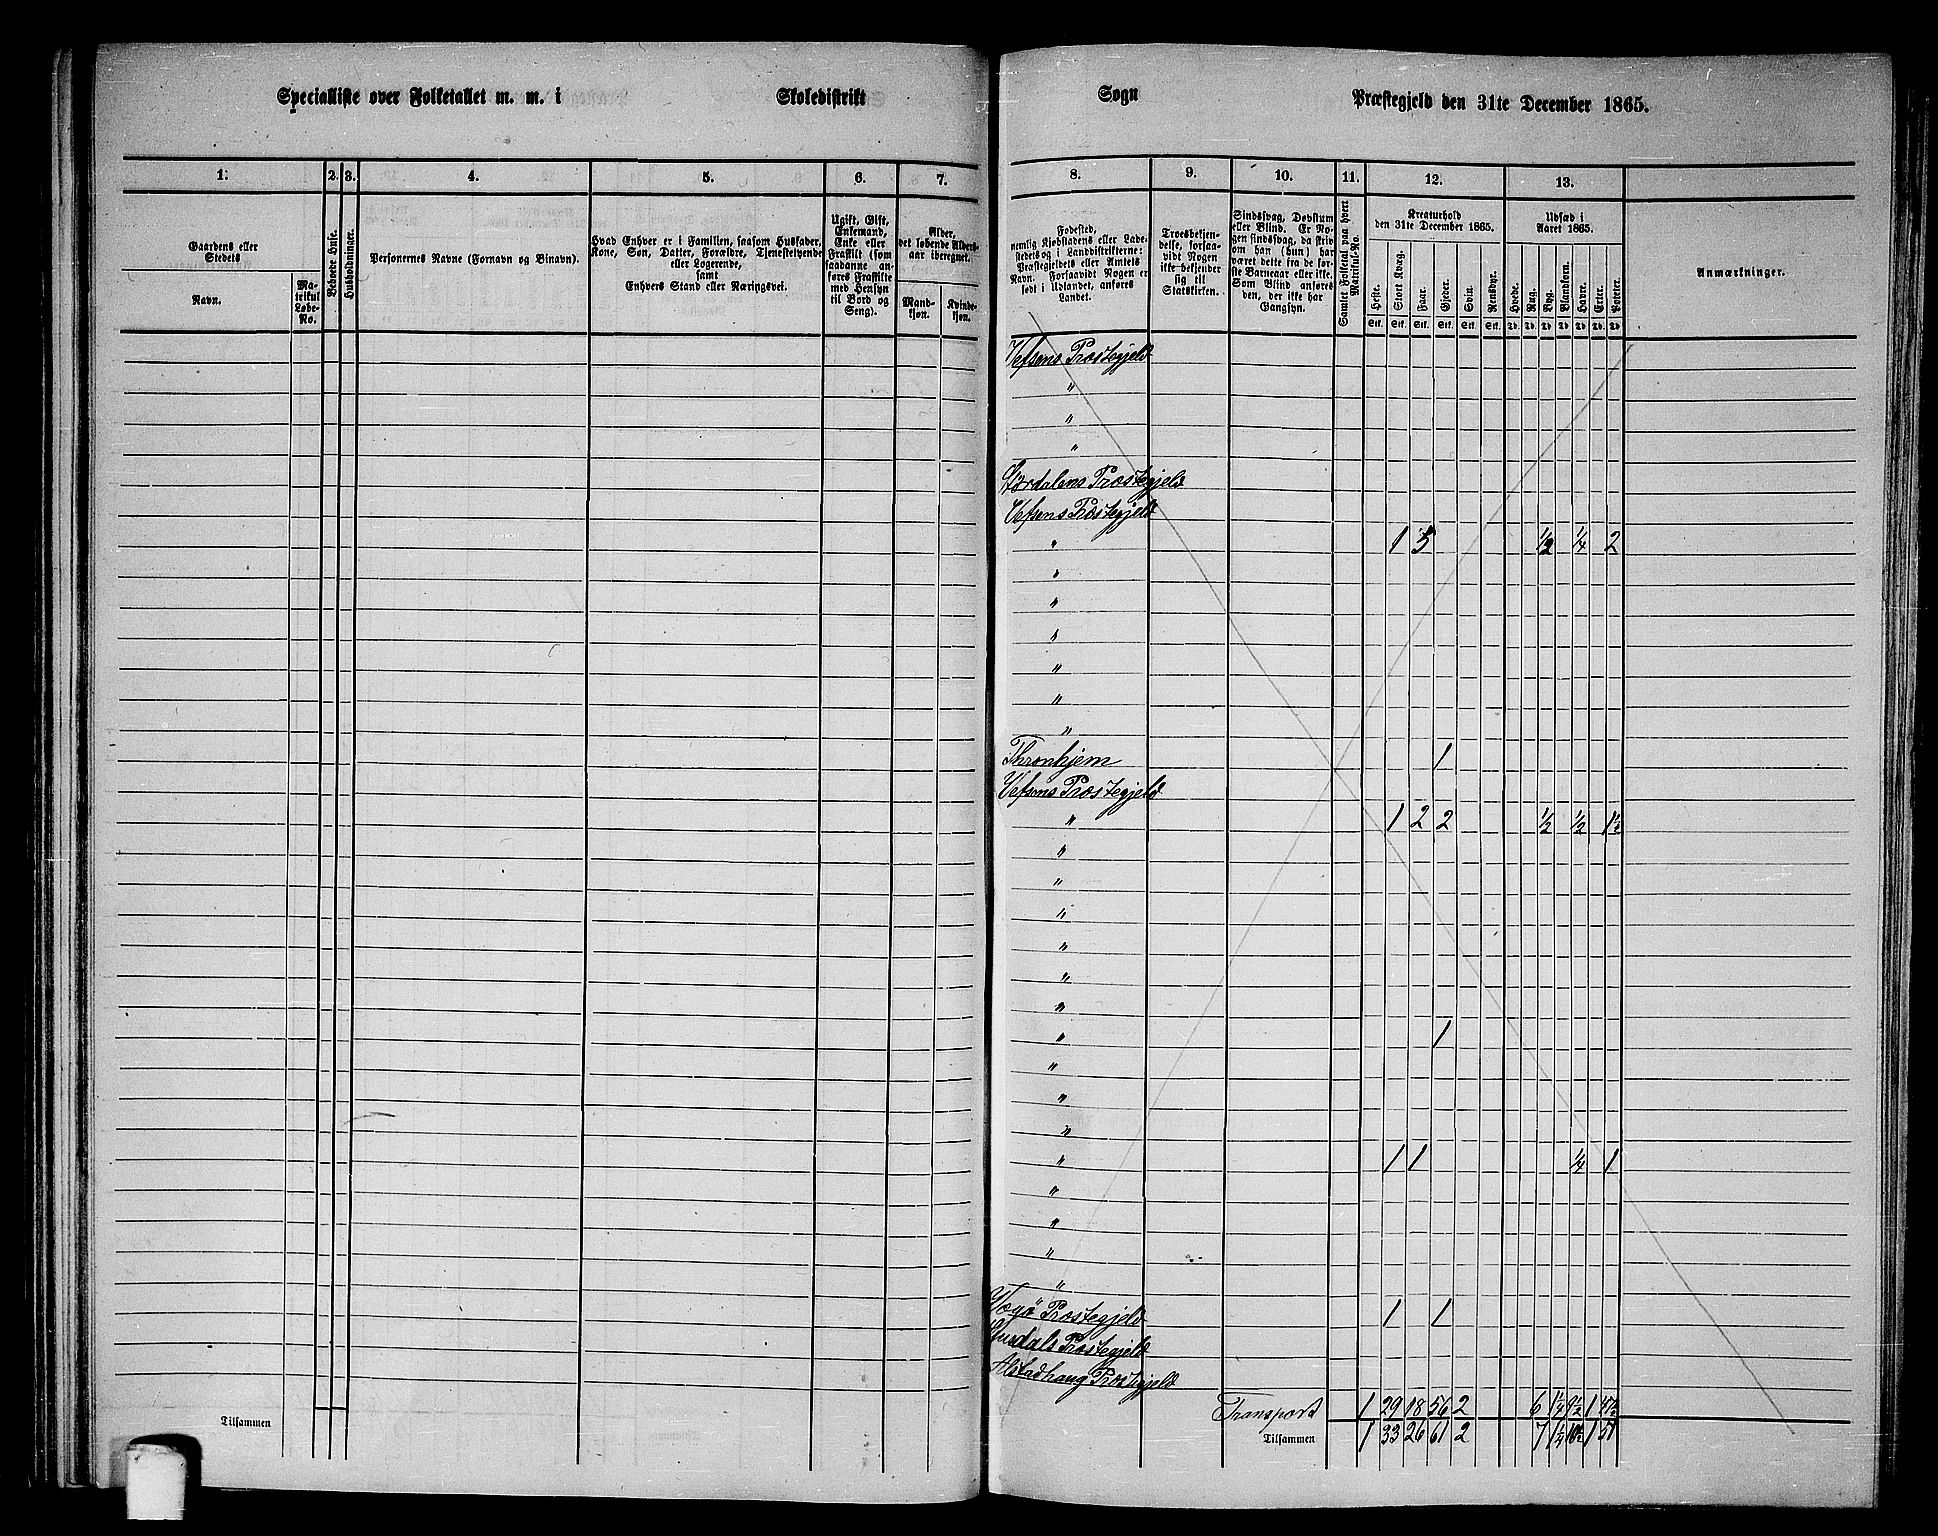 Specialliste over Folketallet m. m. i Skoledistrikt
1. 2. 3. 4. 5. 6. 7.
Gaardens eller Stedets
Navn.
Matrikul Løbe-No.
Bebøede Huse.
Husholdninger.
Personernes Navne (Fornavn og Binavn).
Hvad Enhver er i Familien, saasom Husfader,
Kone, Søn, Datter, Forældre, Tjenestetyende
eller Logerende,
samt
Enhvers Stand eller Næringsvei.
Ugift, Gift,
Enkemand,
Enke eller
Fraskilt (som
saadanne an-
føres Fraskilte
med Hensyn
til Bord og
Seng).
Alder,
det løbende Alders-
aar iberegnet.
Mand-
kjøn.
Kvinde-
kjøn.
Tilsammen
Sogn Præstegjeld den 31te December 1865.
8. 9. 10. 11. 12. 13.
Fødested,
nemlig Kjøbstadens eller Lade-
stedets og i Landdistrikterne:
Præstegjeldets eller Amtets
Navn. Forsaavidt Nogen er
født i Udlandet, anføres
Landet.
Troesbekjen-
delse, forsaa-
vidt Nogen
ikke bekjender
sig til
Statskirken.
Sindssvag, Døvstum
eller Blind. Er No-
gen sindssvag, da skriv
om han (hun) har
været dette fra de før-
ste Barneaar eller ikke.
Som Blind anføres
den, der ikke har
Gangsyn.
Samlet Folketal paa hvert Matrikul-No.
Kreaturhold
den 31te December 1865.
Heste. Stort Kvæg. Faar. Gjeder. Svin. Rensdyr.
Stk. Stk. Stk. Stk. Stk. Stk.
Udsæd i
Aaret 1865.
Hvede. Rug. Byg. Blandkorn. Havre. Erter. Poteter.
Anmærkninger.
Vefsens Præstegjeld
"
"
"
Størdalens Præstegjeld
Vefsens Præstegjeld
" 1 5 1/2 1/4 2
"
"
"
"
"
"
Thronhjem 1
Vefsens Præstegjeld
" 1 2 2 1/2 1/2 1 1/2
"
"
"
"
"
"
" 1
"
"
"
" 1 1 1/4 1
"
"
"
"
Vægø Præstegjeld 1 1
Præstegjeld
Alstadhaug Præstegjeld
Transport 1 29 18 56 2 6
Tilsammen 1 33 26 61 2 7